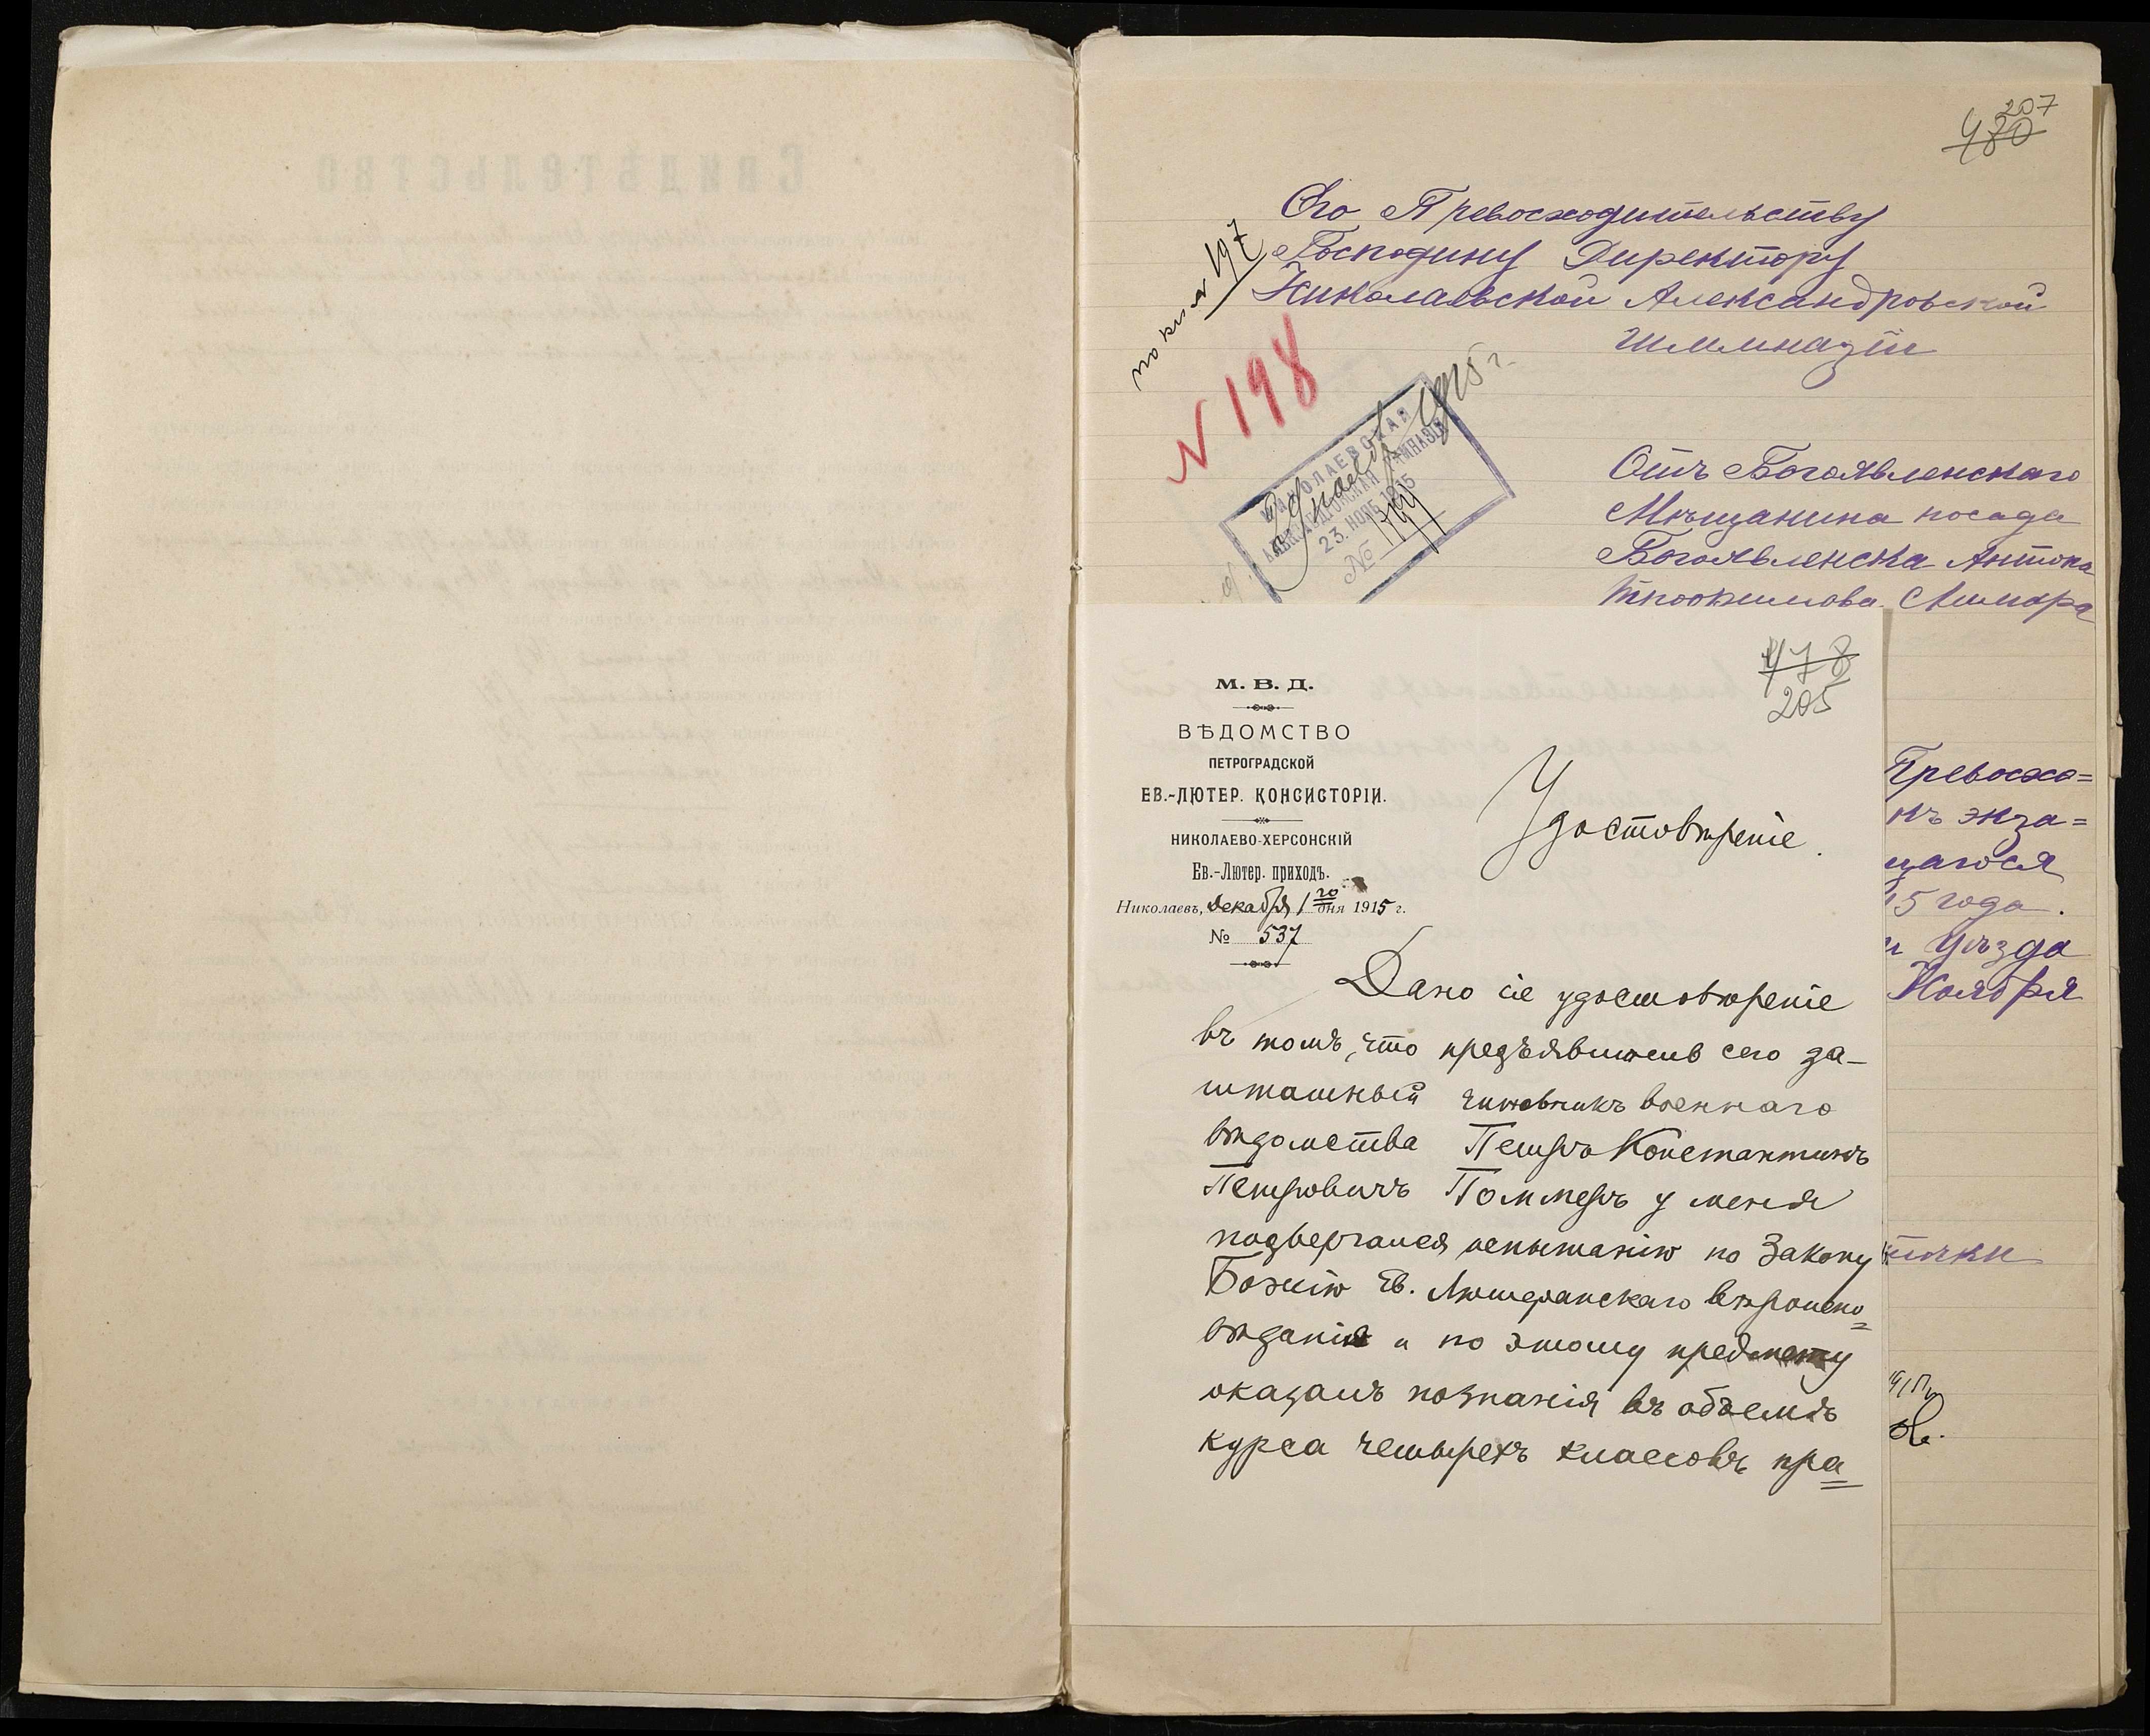 207
480
Его Превосходительству
Господину Директору
Николаевской Александровской
гимназіи
по кн. № 197
N 198
НИКОЛАЕВСКАЯ
АЛЕКСАНДРОВСКАЯ ГИМНАЗІЯ
23. НОЯБ. 1915
№
1915 г.
Отъ Богоявленскаго
Мѣщанина посада
Богоявленска Антона
Трофимова
478
205
М. В. Д.
ВѢДОМСТВО
ПЕТРОГРАДСКОЙ
ЕВ.-ЛЮТЕР. КОНСИСТОРІИ.
НИКОЛАЕВО-ХЕРСОНСКІЙ
Ев.-Лютер. приходъ.
Николаевъ, декабря 1го дня 1915 г.
№ 537
Удостовѣреніе.
Дано сіе удостовѣреніе
въ томъ, что предъявитель сего за-
штатный чиновникъ военнаго
вѣдомства Петръ Константинъ
Петровичъ Поммеръ у меня
подвергался испытанію по Закону
Божію Ев. Лютеранскаго вѣроиспо=
вѣданія и по этому предмету
оказалъ познанія въ объемѣ
курса четырехъ классовъ пра=
Превосхо=
къ экза=
щагося
15 года.
и уѣзда
Ноября